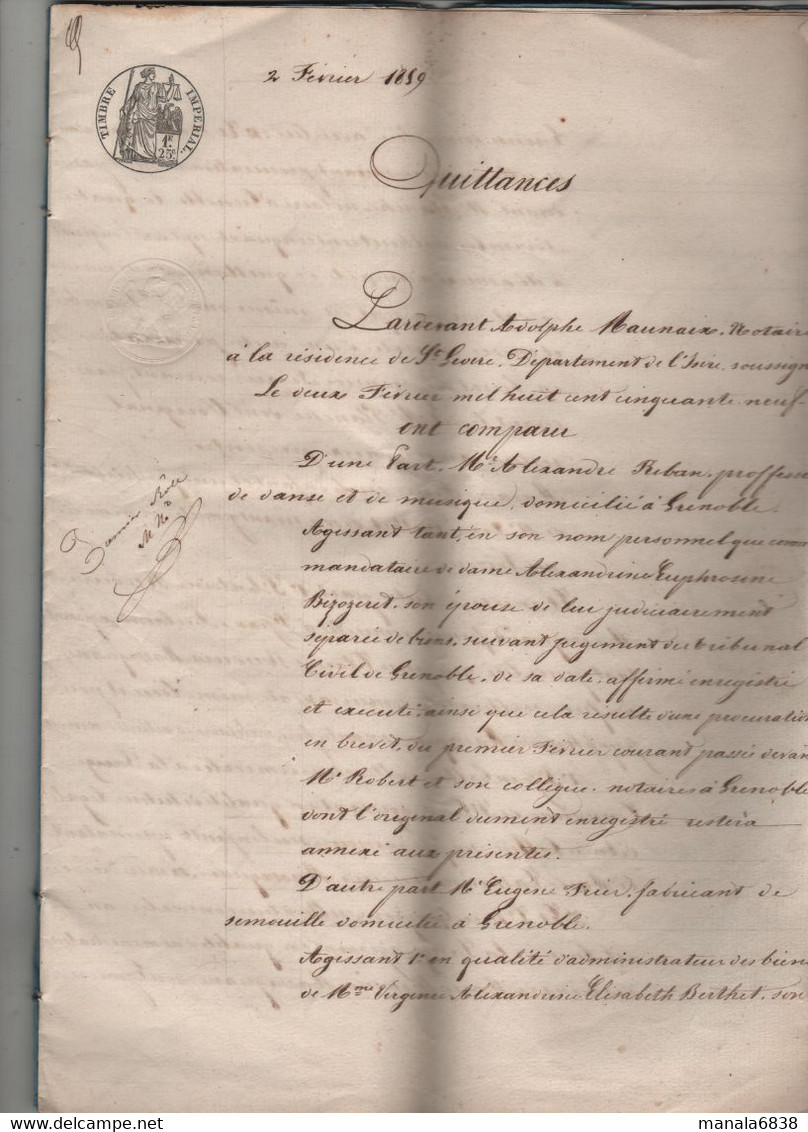 2 Février 1859
TIMBRE IMPERIAL.
1F
25c
Quittances
Pardevant Adolphe Maunaix, Notair
à la résidence de St. Département de l'Isère, soussign
Le deux Février mil huit cent cinquante neuf
ont comparu
D'une Part, Mr Alexandre Reban, proffesse
de danse et de musique, domicilié à Grenoble.
Agissant tant, en son nom personnel que comm
mandataire de dame Alexandrine Euphrosine
Bizozeret, son épouse de lui judiciairement
séparée de biens, suivant jugement du tribunal
Civil de Grenoble, de sa date, affirmé enregistré
et executé, ainsi que cela résulte d'une procuration
en brevet, du premier Février courant passée devan
Me Robert et son collègue, notaires à Grenoble
dont l'original dument enregistré restera
annexé aux présentes.
D'autre part Mr Eugène Frier, fabricant de
semouille domicilié à Grenoble.
Agissant 1° en qualité d'administrateur des bien
de Mme Virginie Alexandrine Elisabeth Berthet, son
Rôle
manala6838